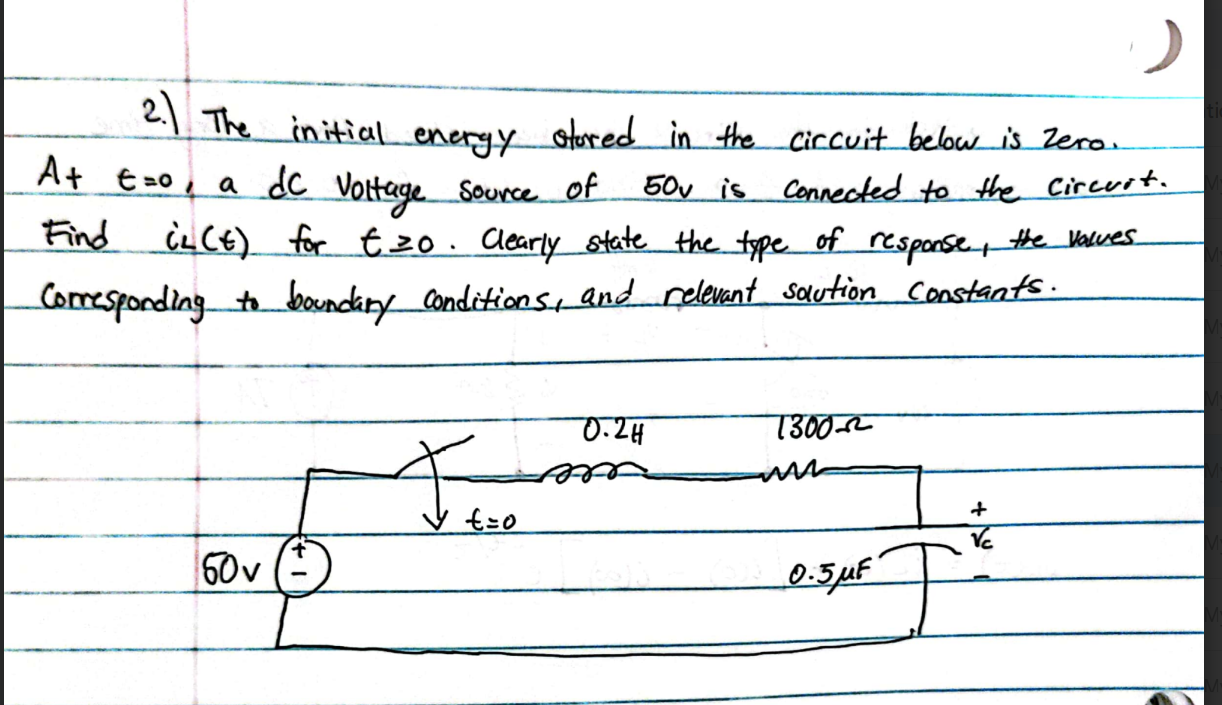 2.) The initial energy stored in the circuit below is Zero.
At t=0, a dC Voltage Source of 50v is Connected to the Circuit.
Find iL(t) for t≥0. Clearly state the type of response, the Values
Corresponding to boundary Conditions, and relevant solution Constants.
0.2H 1300Ω
t=0
+
Vc
-
50v
+
-
0.5μF